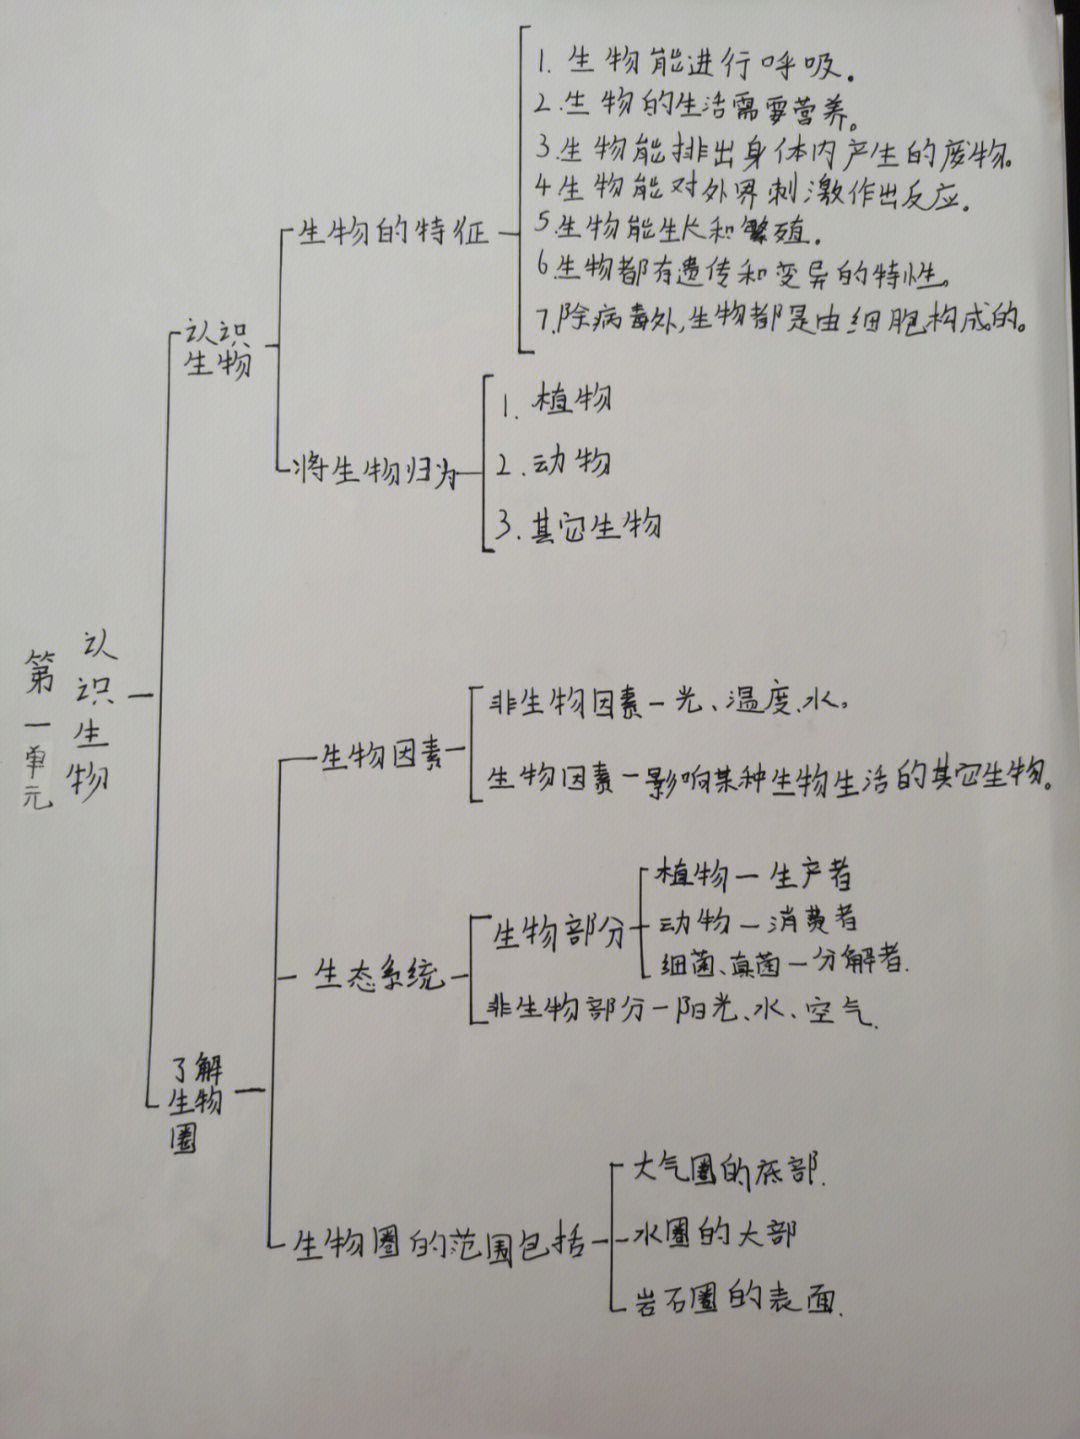 第一单元
认识生物
认识
生物
生物的特征
1. 生物能进行呼吸.
2.生物的生活需要营养。
3.生物能排出身体内产生的废物。
4生物能对外界刺激作出反应.
5.生物能生长和繁殖.
6.生物都有遗传和变异的特性。
7.除病毒外,生物都是由细胞构成的。
将生物归为
1. 植物
2.动物
3.其它生物
了解
生物
圈
生物因素
非生物因素—光、温度、水。
生物因素—影响某种生物生活的其它生物。
生态系统
生物部分
植物—生产者
动物—消费者
细菌、真菌—分解者.
非生物部分—阳光、水、空气.
生物圈的范围包括
大气圈的底部.
水圈的大部
岩石圈的表面.